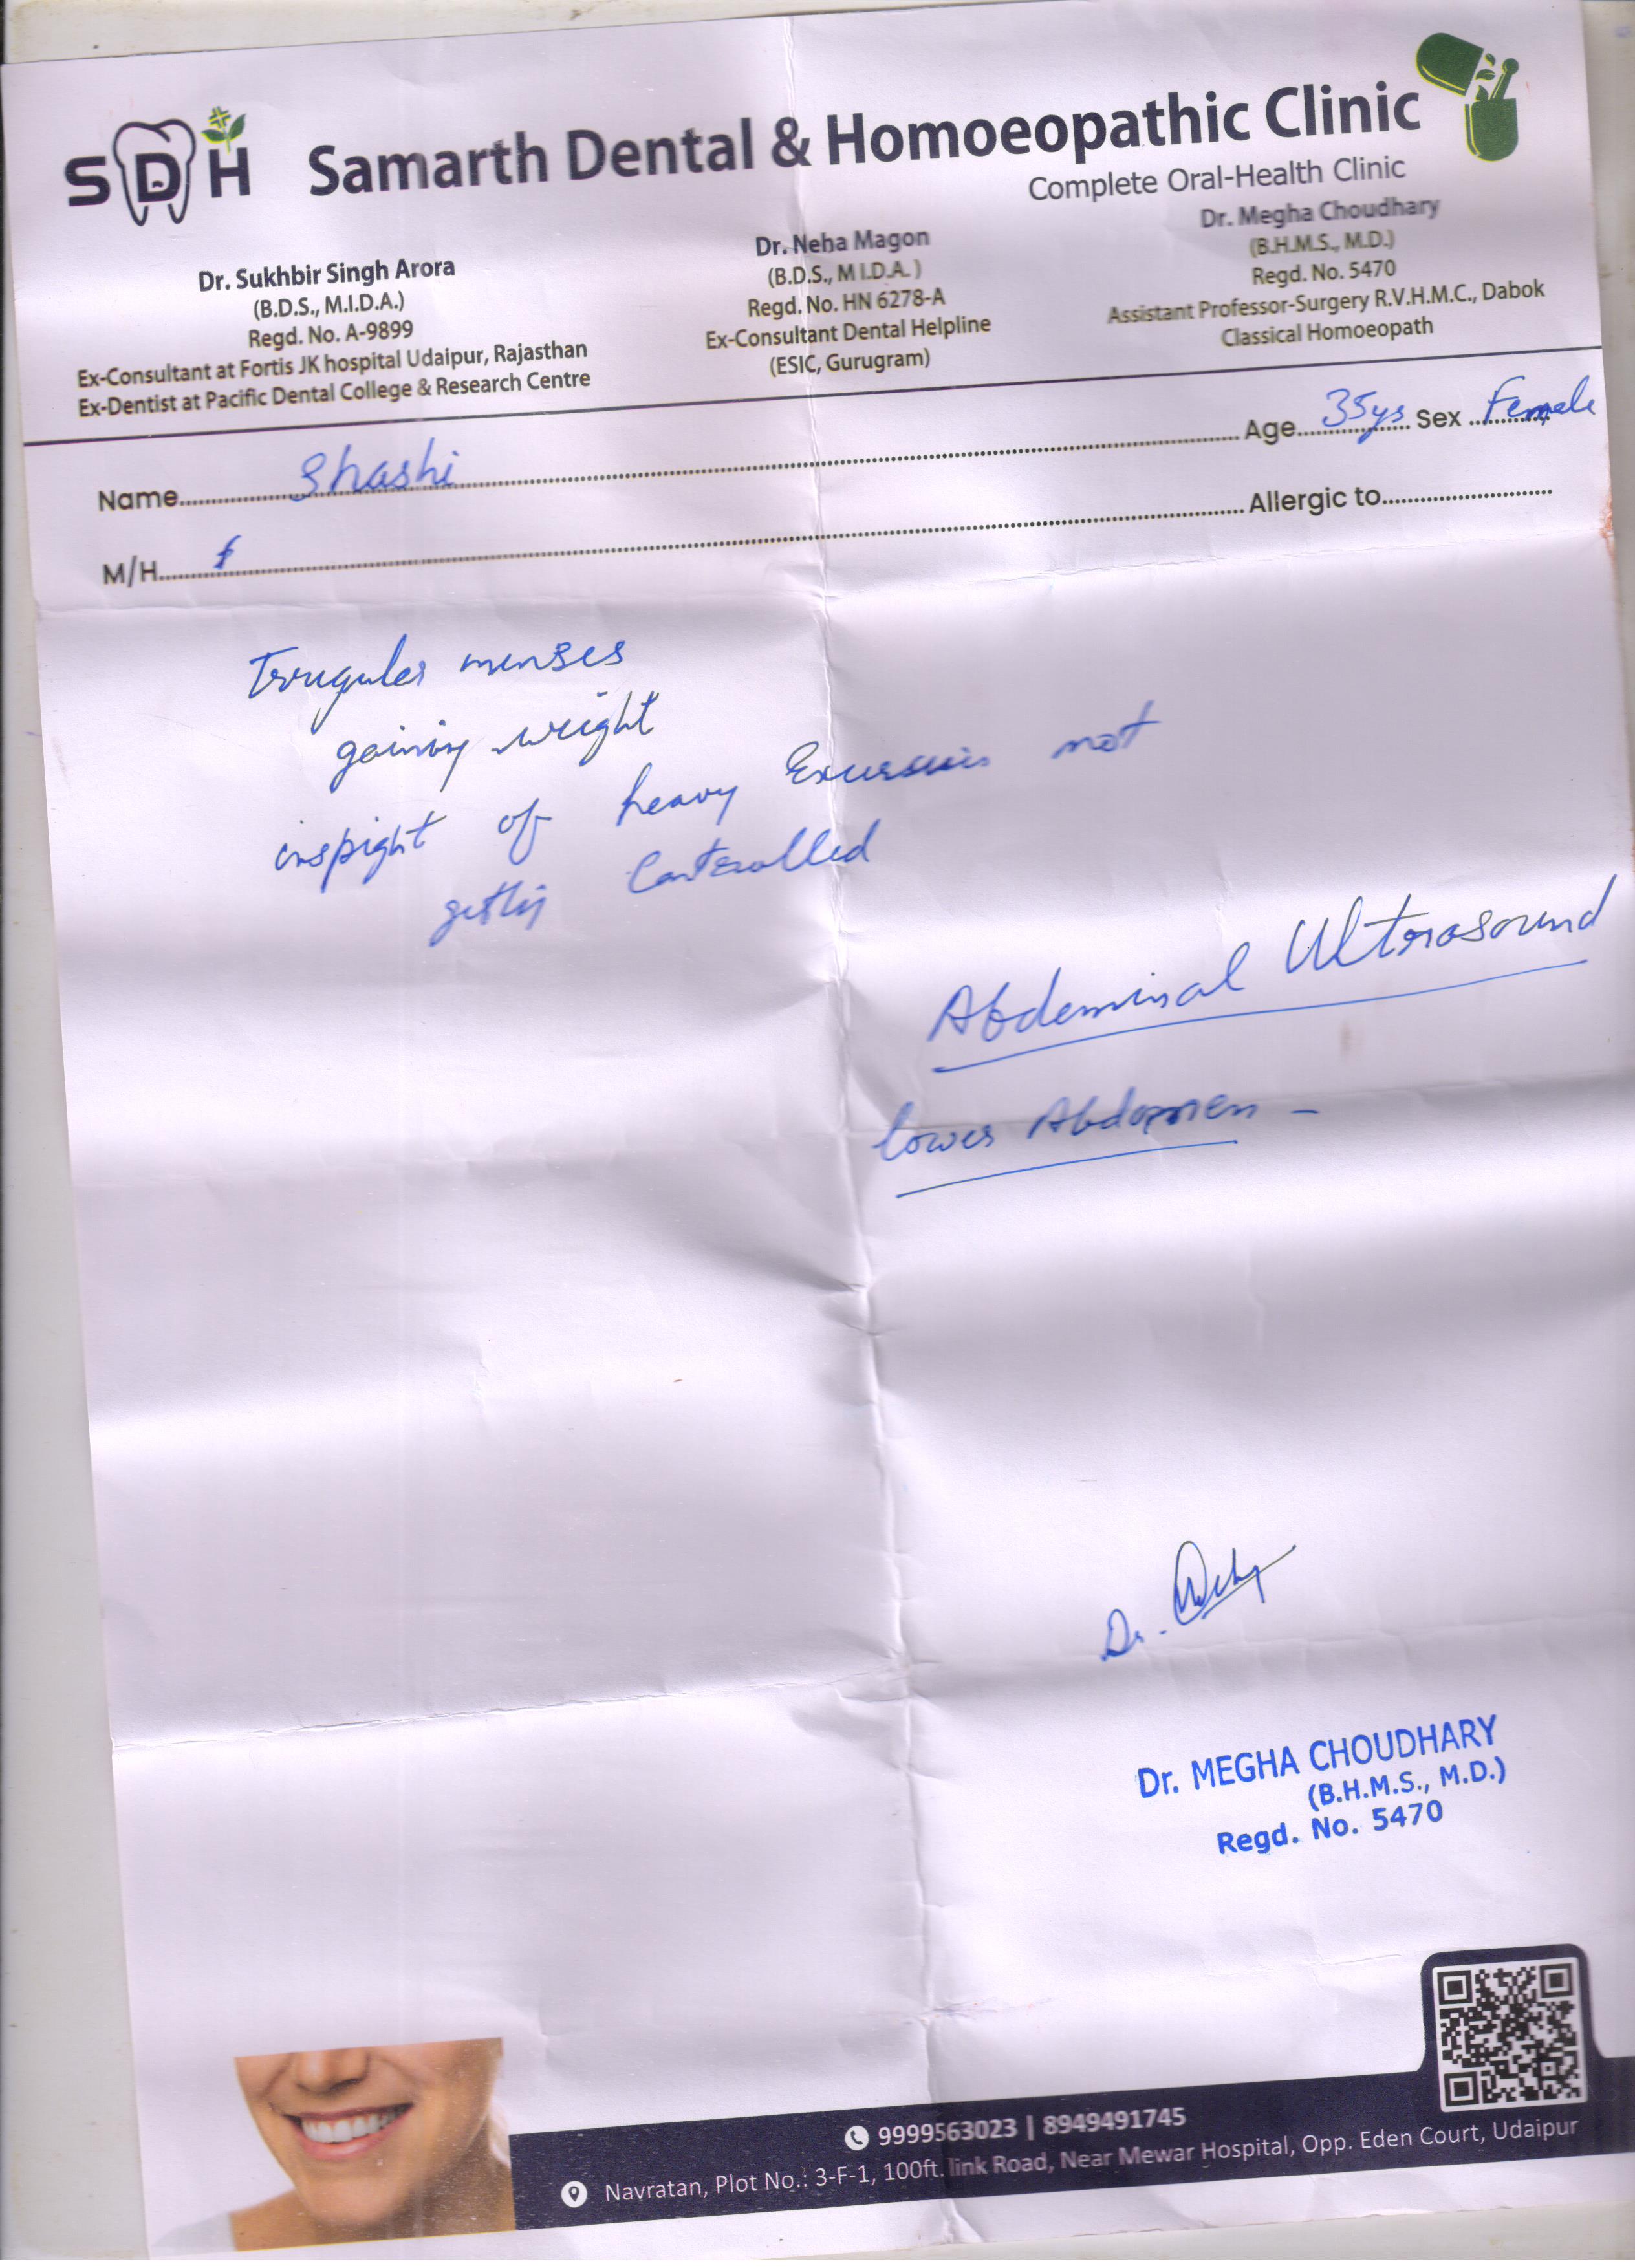 SDH
Samarth Dental & Homoeopathic Clinic
Complete Oral-Health Clinic
Dr. Sukhbir Singh Arora
(B.D.S., M.I.D.A.)
Regd. No. A-9899
Ex-Consultant at Fortis JK hospital Udaipur, Rajasthan
Ex-Dentist at Pacific Dental College & Research Centre
Dr. Neha Magon
(B.D.S., M I.D.A. )
Regd. No. HN 6278-A
Ex-Consultant Dental Helpline
(ESIC, Gurugram)
Dr. Megha Choudhary
(B.H.M.S., M.D.)
Regd. No. 5470
Assistant Professor-Surgery R.V.H.M.C., Dabok
Classical Homoeopath
Name Shashi Age 35ys Sex Female
M/H Allergic to
Irregular menses
gaining weight
inspight of heavy not
getting Controlled
Abdominal Ultrasound
lower Abdomen -
Dr.
Dr. MEGHA CHOUDHARY
(B.H.M.S., M.D.)
Regd. No. 5470
9999563023 | 8949491745
Navratan, Plot No.: 3-F-1, 100ft. link Road, Near Mewar Hospital, Opp. Eden Court, Udaipur